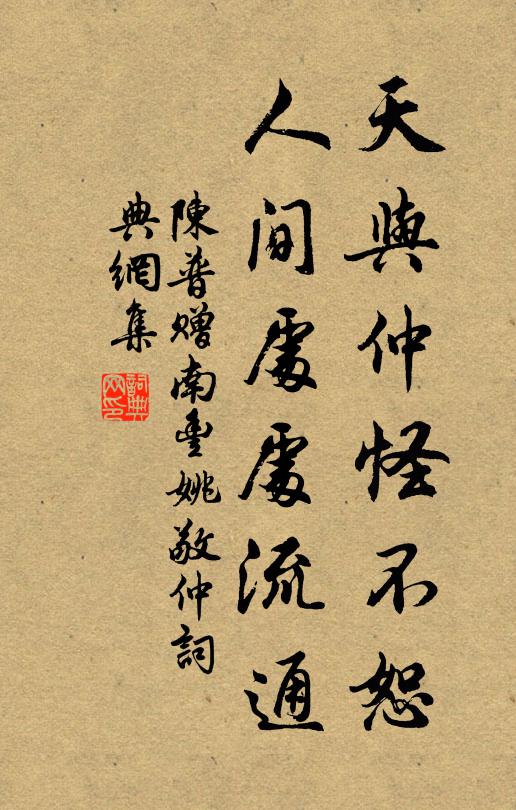 天與仲怪不恕
人間處處流通
陳普贈南豐姚敬仲詞
典網集
詞典網印